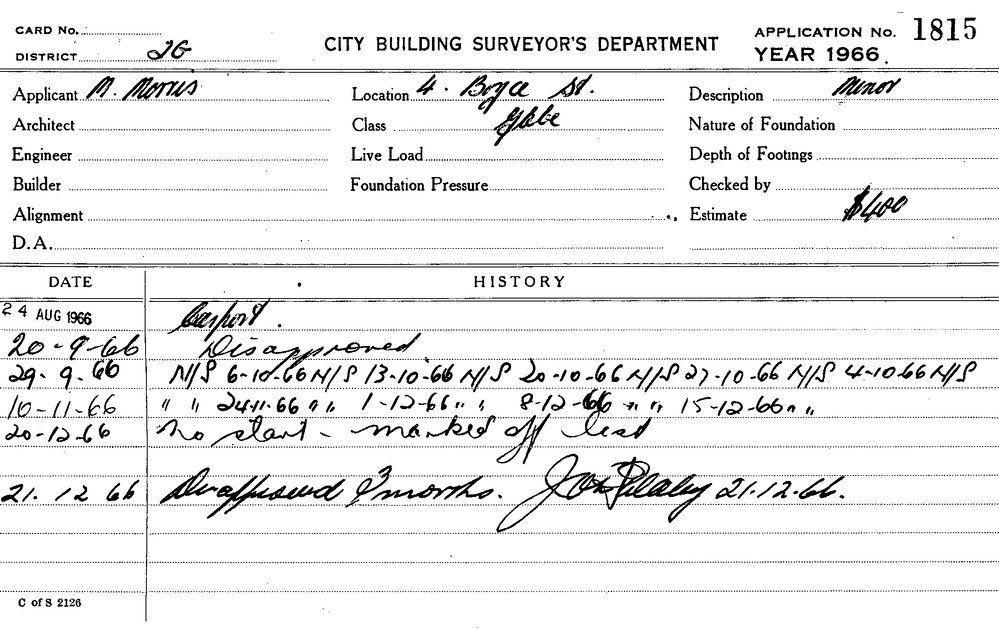 CARD No.
DISTRICT 2G
CITY BUILDING SURVEYOR'S DEPARTMENT
APPLICATION No. 1815
YEAR 1966.
Applicant M. Morris
Location 4. Boyce St.
Description Minor
Architect
Class Glebe
Nature of Foundation
Engineer
Live Load
Depth of Footings
Builder
Foundation Pressure
Checked by
Alignment
Estimate $400
D.A.
DATE HISTORY
24 AUG 1966 Carport.
20-9-66 Disapproved
29-9-66 N/S 6-10-66 N/S 13-10-66 N/S 20-10-66 N/S 27-10-66 N/S 4-10-66 N/S
10-11-66 " " 24-11-66 " " 1-12-66 " " 8-12-66 " " 15-12-66 " "
20-12-66 No start - marked off list
21. 12 66 Disapproved 3 months. 21.12.66.
C of S 2126